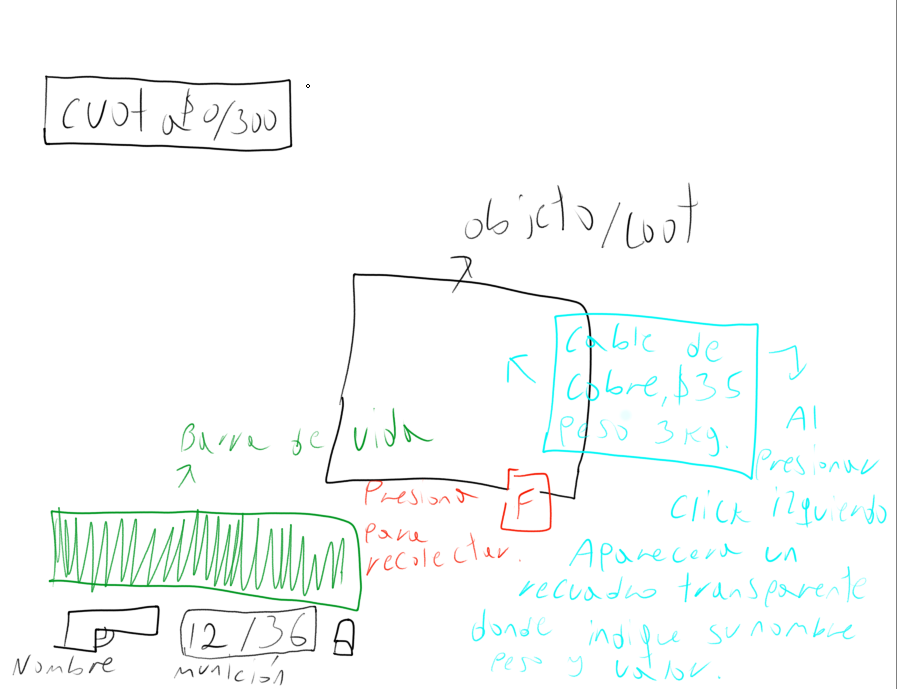 cuota $0/300
objeto/Loot
Cable de
Cobre, $35
Peso 3kg.
Al
Presionar
click izquierdo
Aparecera un
recuadro transparente
donde indique su nombre
peso y valor.
Barra de vida
Presiona
para
recolectar.
F
12/36
Nombre
munición